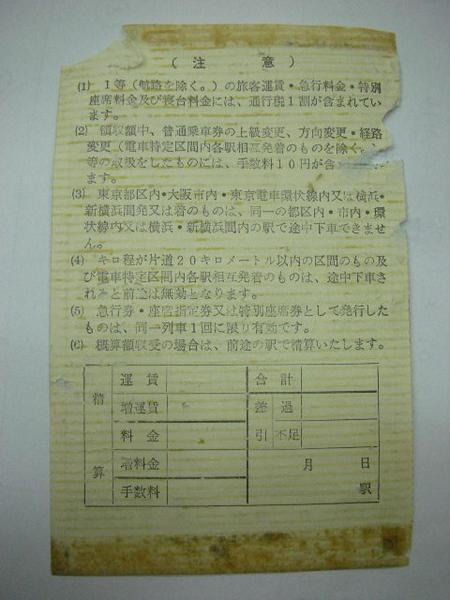 （注　意）
(1) 1等（航路を除く。）の旅客運賃・急行料金・特別
座席料金及び寝台料金には、通行税1割が含まれてい
ます。
(2) 領収額中、普通乗車券の上級変更、方向変更・経路
変更（電車特定区間内各駅相互発着のものを除く。）
等の取扱をしたものには、手数料10円が含
ます。
(3) 東京都区内・大阪市内・東京電車環状線内又は横浜・
新横浜間発又は着のものは、同一の都区内・市内・環
状線内又は横浜・新横浜間内の駅で途中下車できませ
ん。
(4) キロ程が片道20キロメートル以内の区間のもの及
び電車特定区間内各駅相互発着のものは、途中下車さ
れると前途は無効となります。
(5) 急行券・座席指定券又は特別座席券として発行した
ものは、同一列車1回に限り有効です。
(6) 概算額収受の場合は、前途の駅で精算いたします。
精算
運賃
増運賃
料金
増料金
手数料
合計
差引
過
不足
月　日
駅